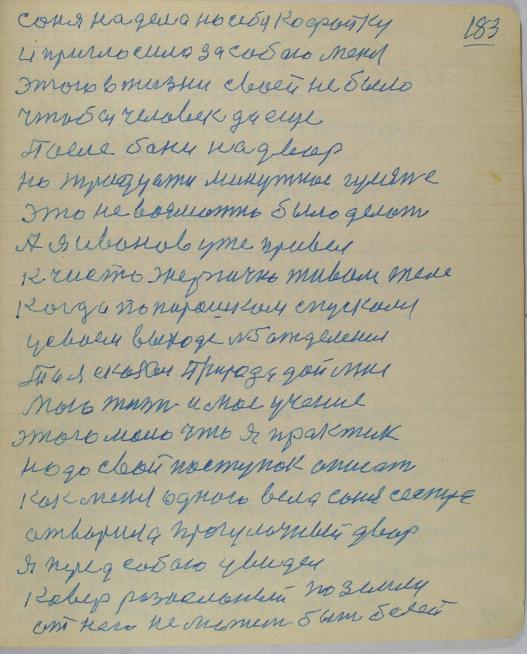 183
соня надела на себя кофтку
и пригласила за собою меня
этого в жизни своей не было
чтобы человек да еще
После бани на двор
на тридцати минутное гуляне
Это не возможно было делат
А я иванов уже привел
к чисто энергично живом теле
Когда по порошкам спускали
у своем выходе из отделения
Та я сказал Природа дай мне
мою жизн и мое учение
этого мало что я практик
надо свой поступок описат
как меня одного вела соня сестра
отворила прогулочный двор
я перед собою увидел
Ковер разосланый по земли
от него не может быт белей